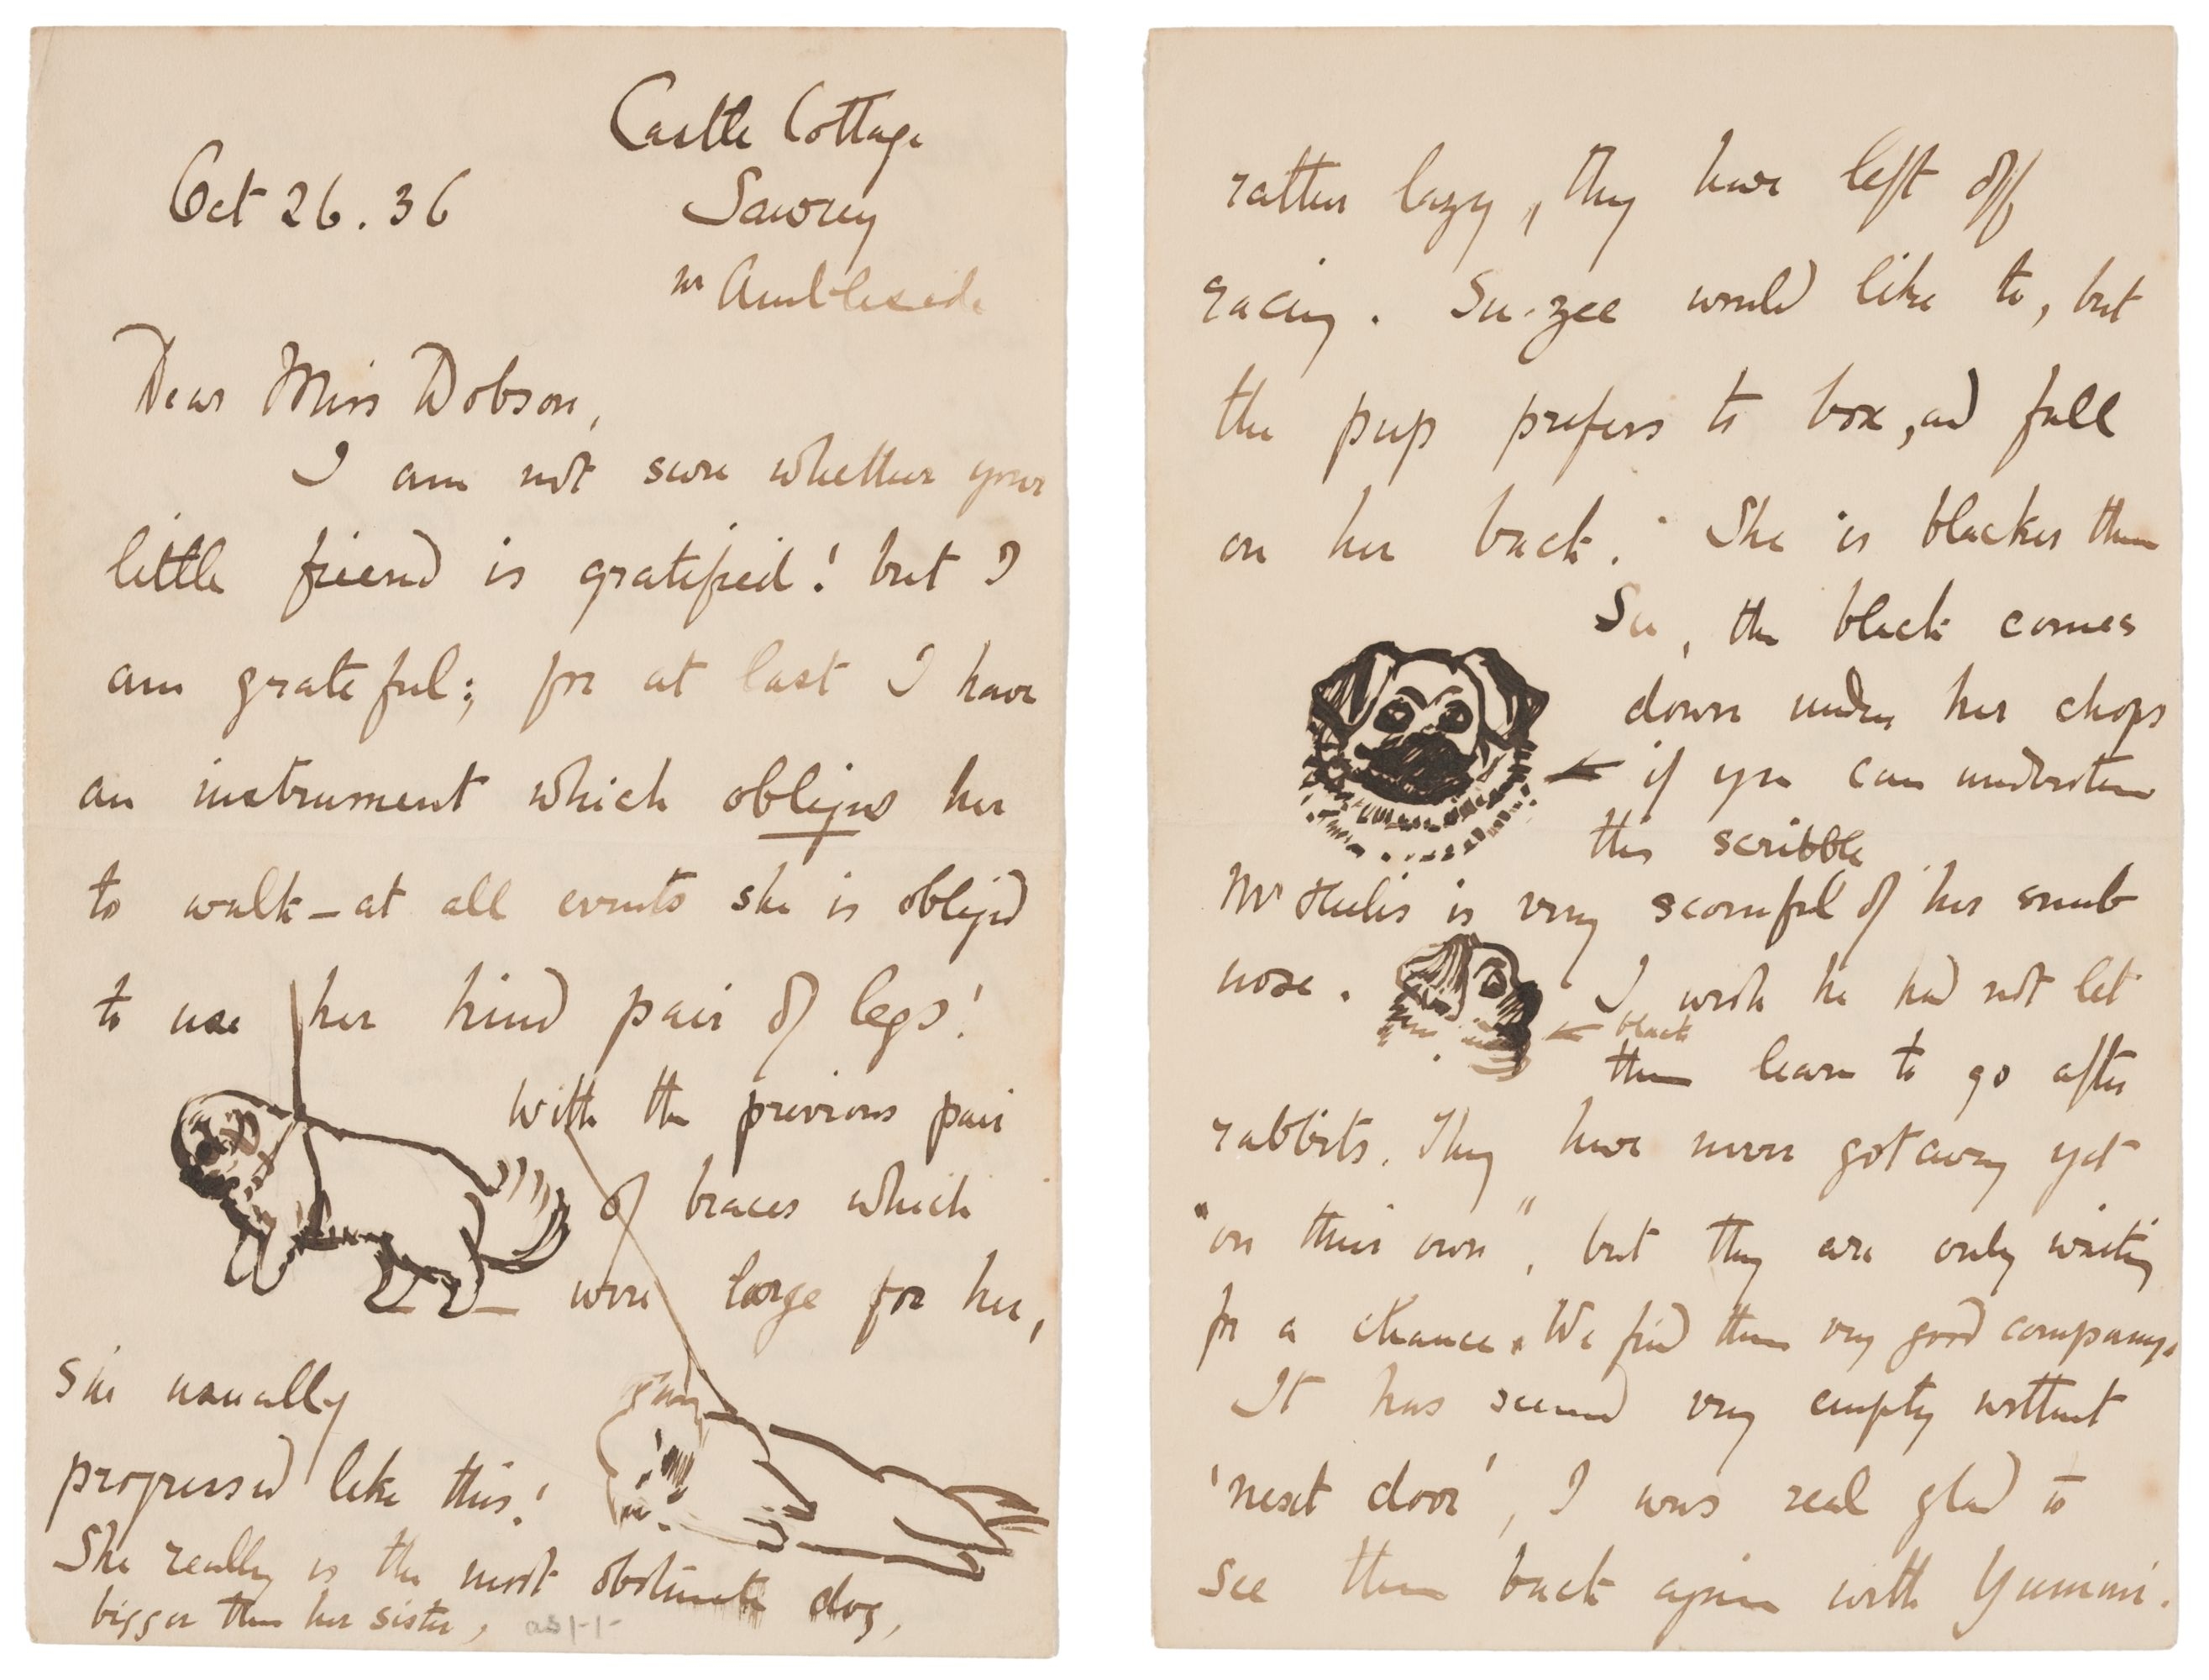 Castle Cottage
Oct 26. 36
Sawrey
nr Ambleside
Dear Miss Dobson,
I am not sure whether your
little friend is gratified! but I
am grateful; for at last I have
an instrument which obliges her
to walk – at all events she is obliged
to use her hind pair of legs!
With the previous pair
of braces which
were large for her,
she usually
progressed like this!
She really is the most obstinate dog,
bigger than her sister,
rather lazy, they have left off
racing. Su-zee would like to, but
the pup prefers to box, and fall
on her back. She is blacker than
Su, the black comes
down under her chops
if you can understand
this scribble
Mr Heelis is very scornful of her snub
nose. I wish he had not let
black
them learn to go after
rabbits. They have never got away yet
"on their own", but they are only waiting
for a chance. We find them very good company.
It has seemed very empty without
'next door', I was real glad to
see them back again with Yummi.